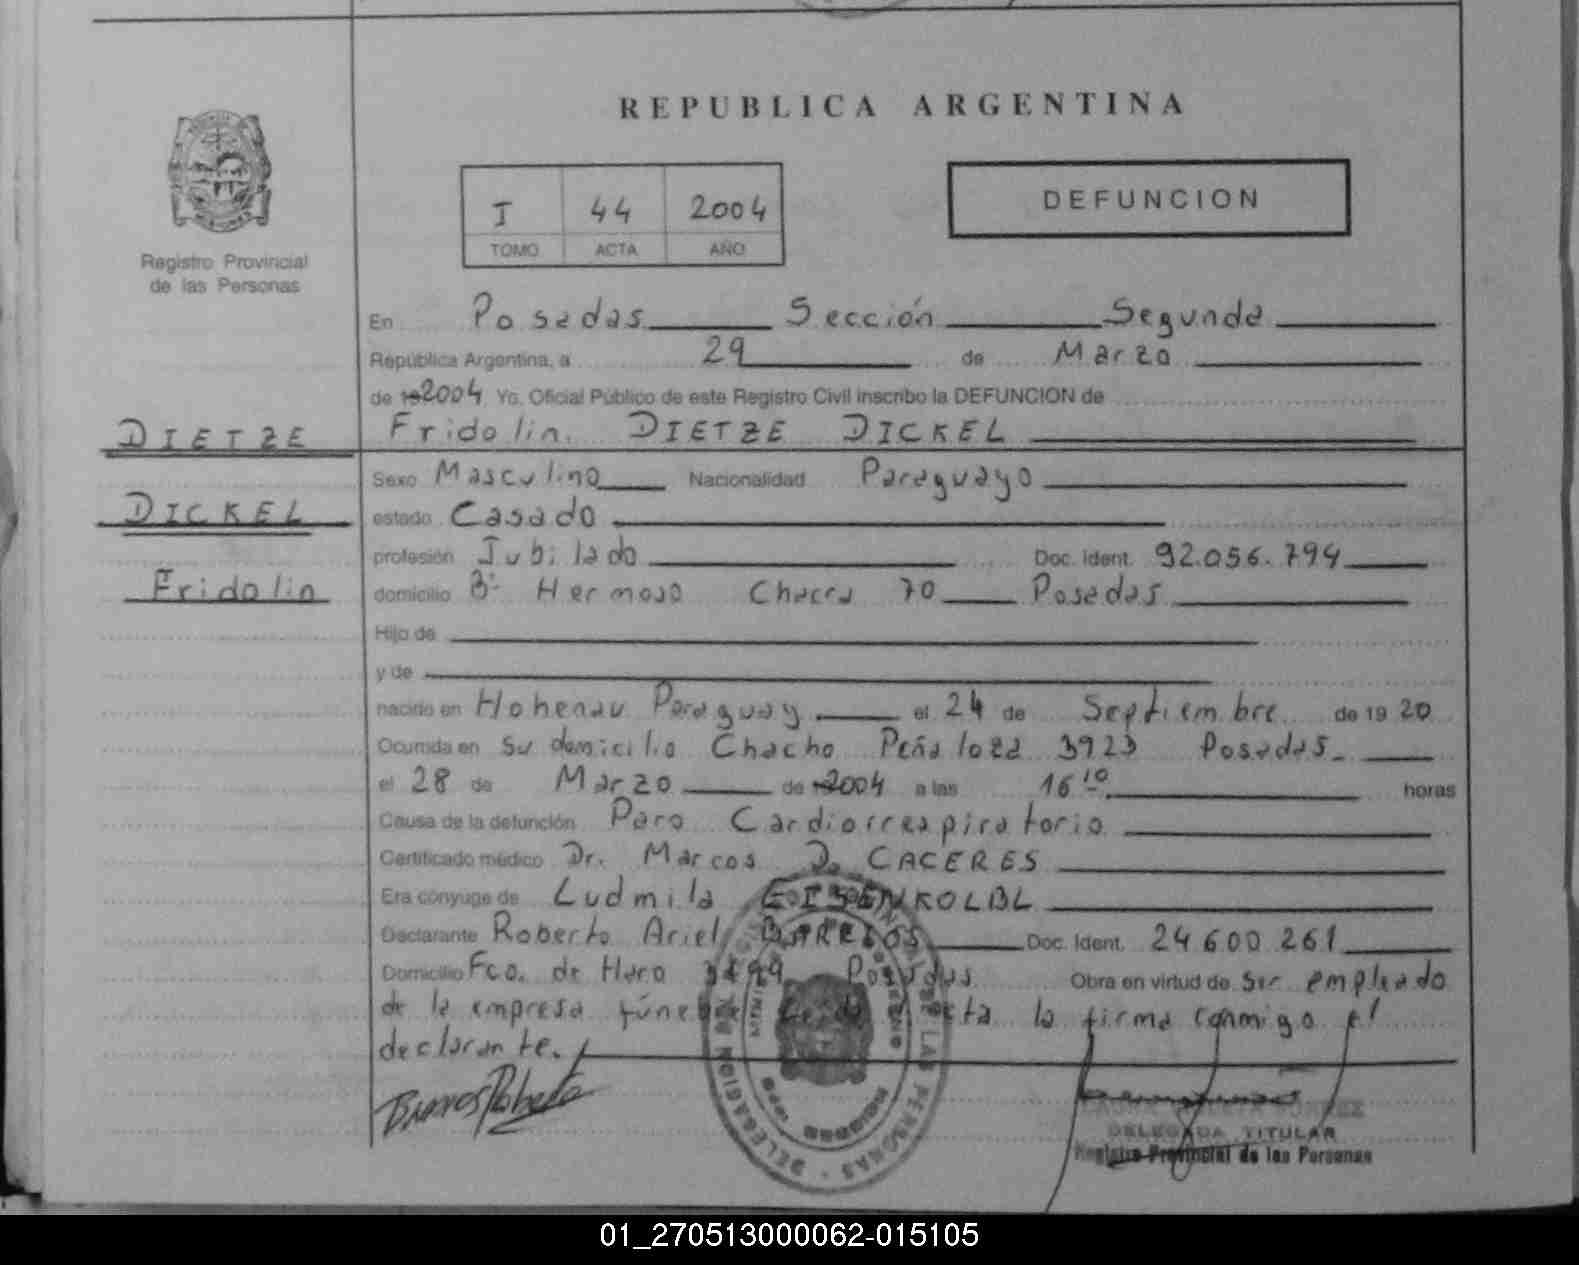 REPUBLICA ARGENTINA
I 44 2004
TOMO ACTA AÑO
DEFUNCION
Registro Provincial
de las Personas
En Posadas Sección Segunda
República Argentina, a 29 de Marzo
de 19 2004 Yo, Oficial Público de este Registro Civil inscribo la DEFUNCION de
DIETZE
Fridolin DIETZE DICKEL
Sexo Masculino Nacionalidad Paraguayo
DICKEL
estado Casado
profesión Jubilado Doc. Ident. 92.056.794
Fridolin
domicilio Bº Hermoso Chacra 70 Posadas
Hijo de
y de
nacido en Hohenau Paraguay el 24 de Septiembre de 19 20
Ocurrida en Su domicilio Chacho Peñaloza 3923 Posadas.
el 28 de Marzo de 2004 a las 16 10 horas
Causa de la defunción Paro Cardiorrespiratorio
Certificado médico Dr. Marcos D. CACERES
Era cónyuge de Ludmila EISENKOLBL
Declarante Roberto Ariel Doc. Ident. 24600261
Domicilio Fco. de Haro Posadas Obra en virtud de Ser empleado
de la empresa fúnebre Leida el acta la firma conmigo el
declarante.
DELEGADA TITULAR
Registro Provincial de las Personas
01_270513000062-015105